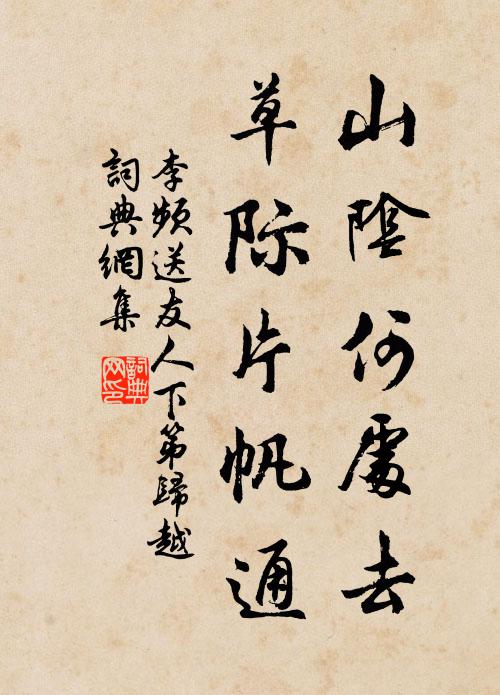 山陰何處去
草际片帆通
李頻送友人下第歸越
詞典網集
詞典網印